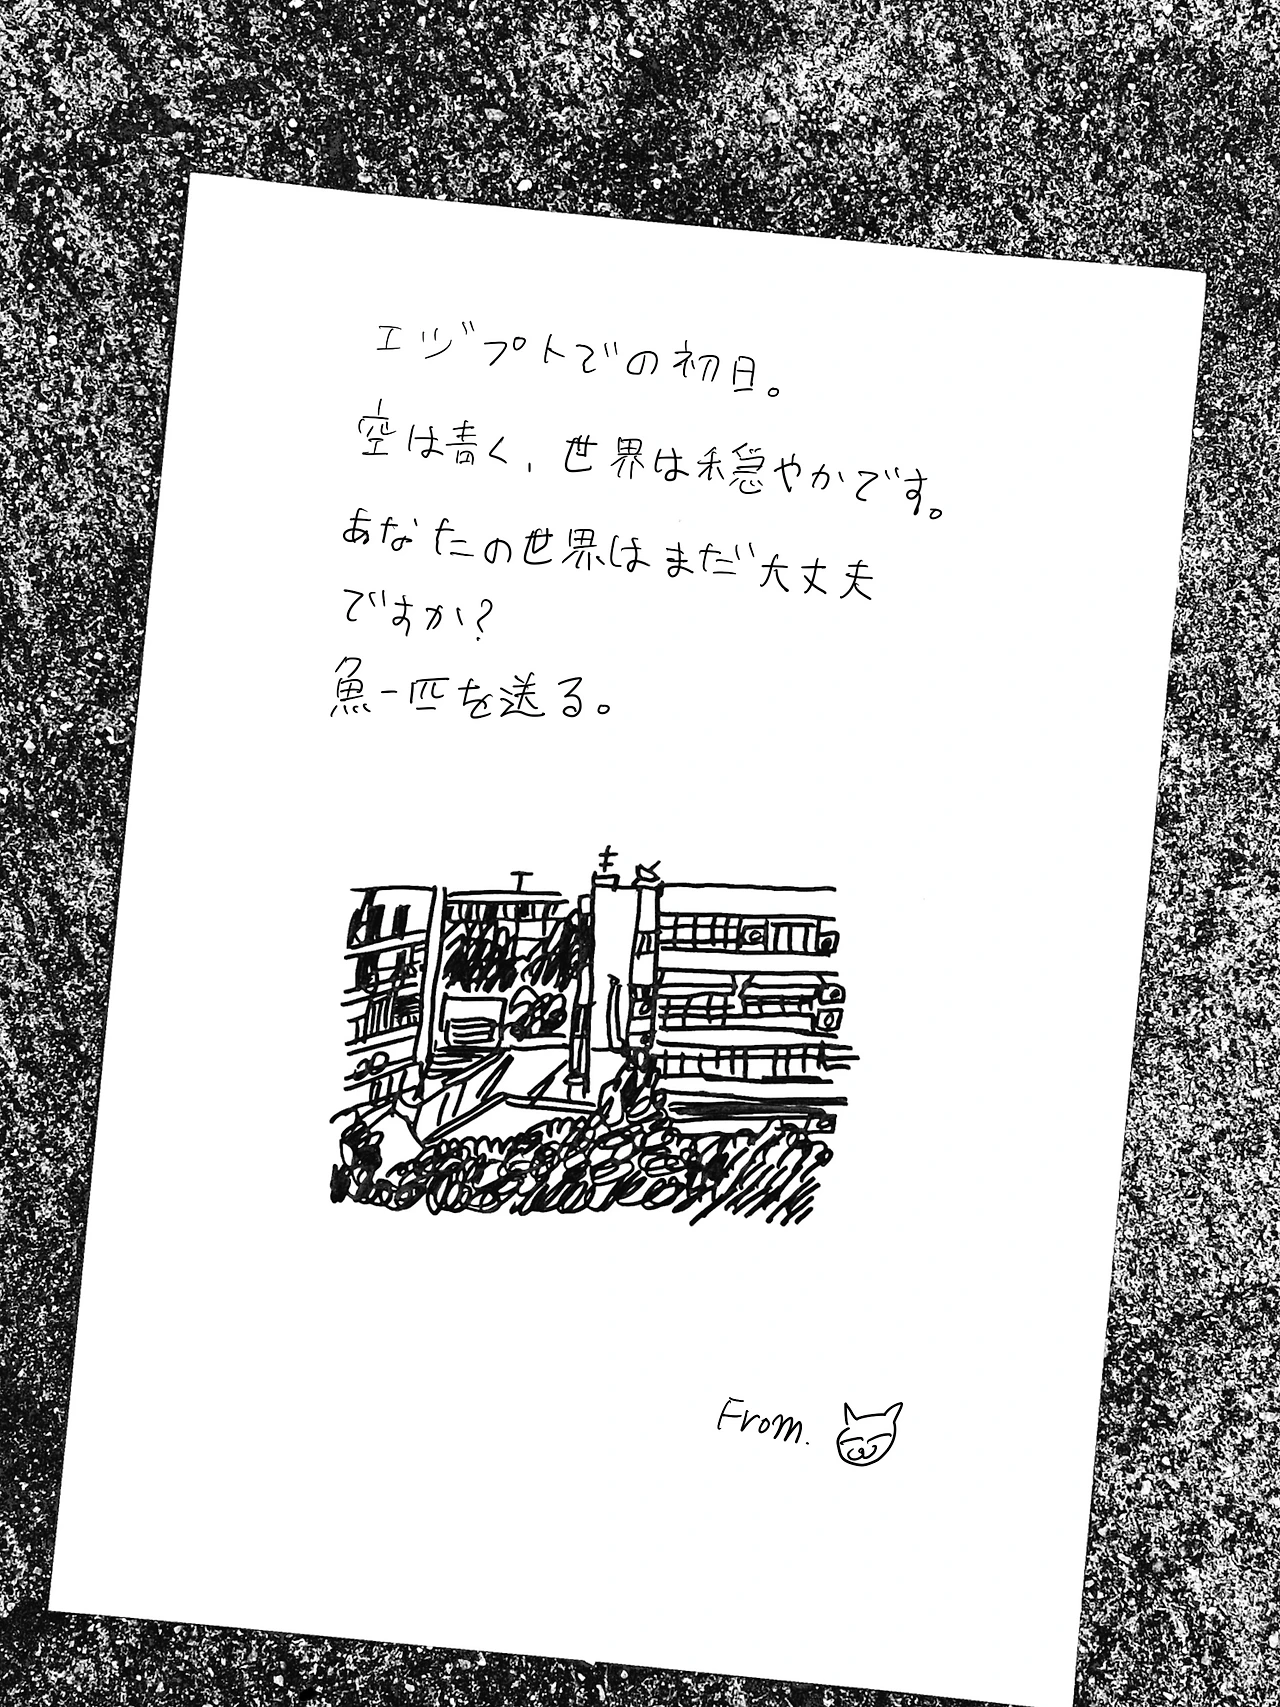 エジプトでの初日。
空は青く、世界は穏やかです。
あなたの世界はまだ大丈夫
ですか？
魚一匹を送る。
From.